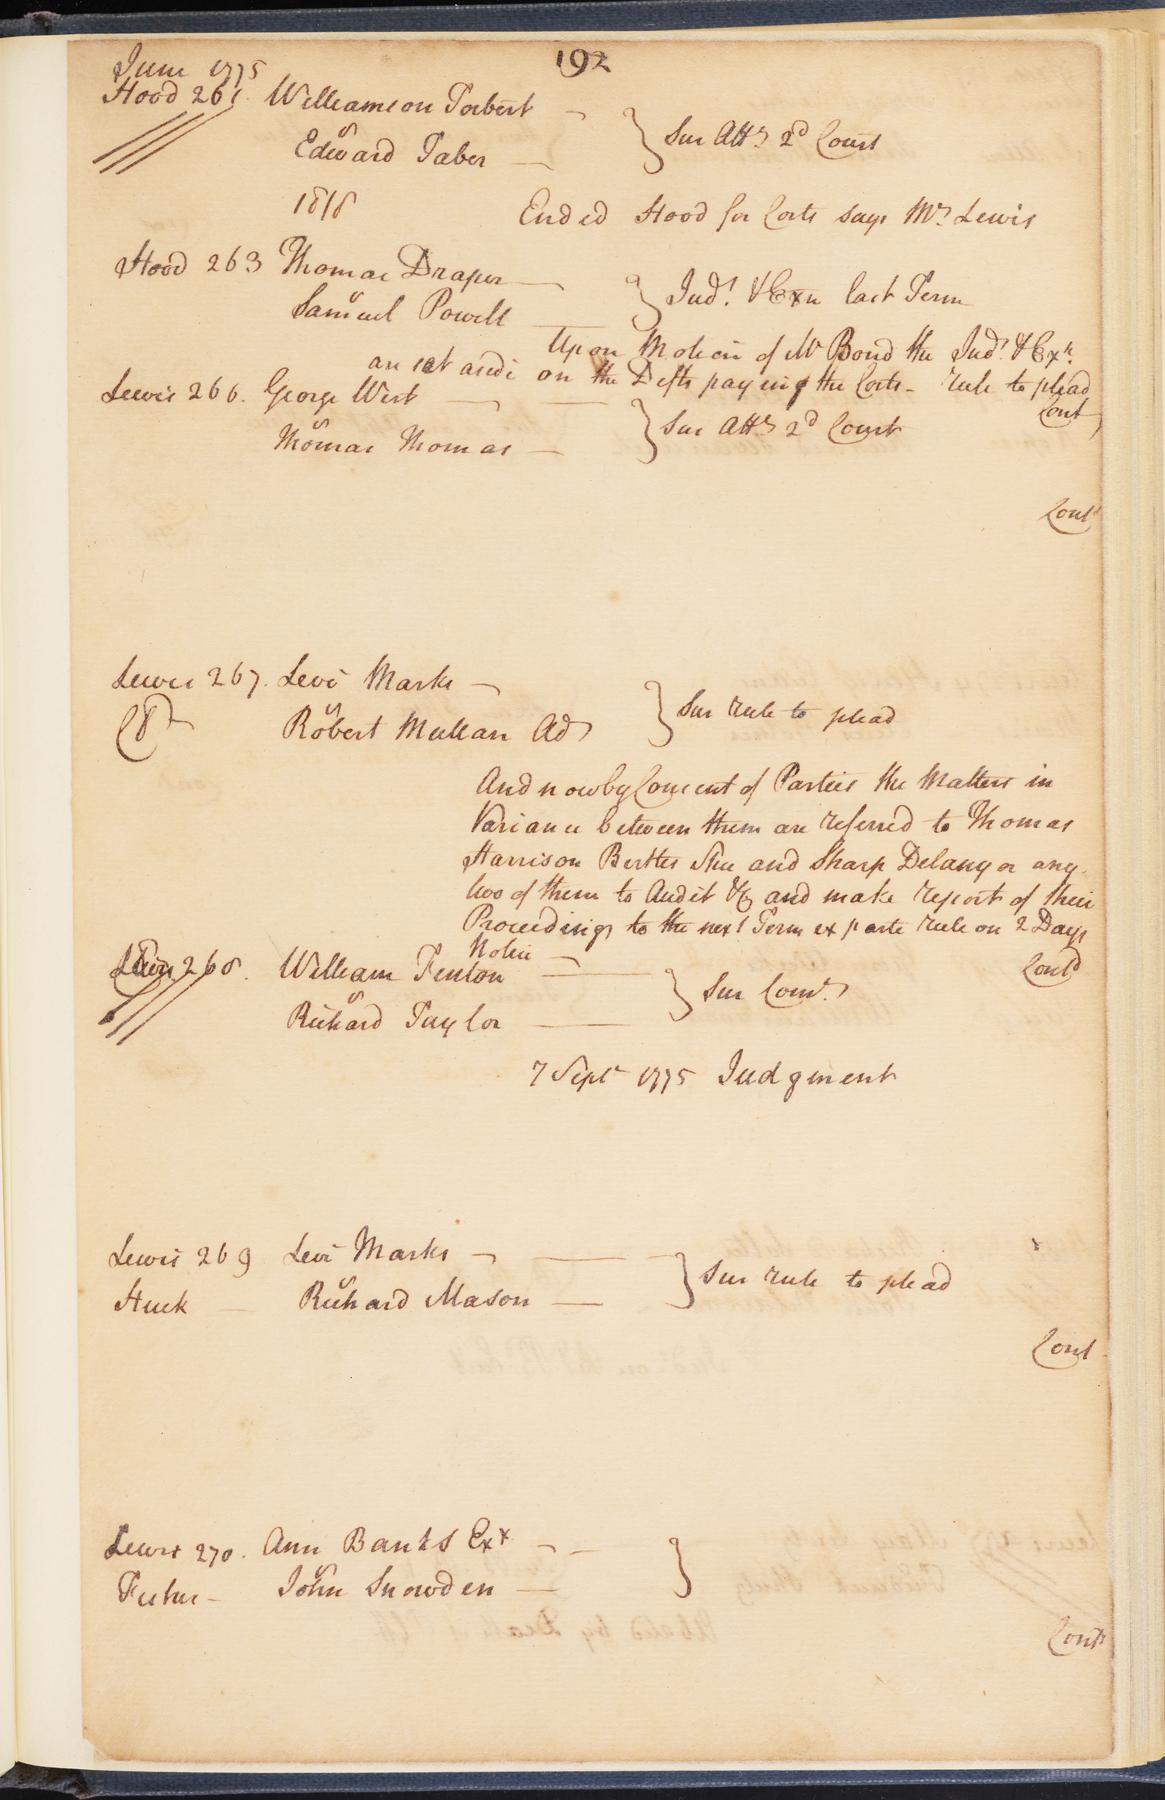 192
June 1775
Hood 261. Williamson Torbert
vs } Sur Atts 2d Court
Edward Taber
Ended Hood for Costs says Mr Lewis
Hood 263 Thomas Draper
vs } Judt. & Exn last Term
Samuel Powell
Upon Motion of Mr Bond the Judt. & Exn.
are set aside on the Defts paying the Costs - rule to plead
Cont
Lewis 266. George West
vs } Sur Atts 2d Court
Thomas Thomas
Cont
Lewis 267. Levi Marks
vs } Sur rule to plead
Robert Mullan Ad
And now by Consent of Parties the Matters in
Variance between them are referred to Thomas
Harrison Bertles Shee and Sharp Delany or any
two of them to Audit &c and make report of their
Proceedings to the next Term ex parte rule on 2 Days
Notice
Contd
Lewis 268. William Fenton
vs } Sur Comr.
Richard Taylor
7 Sept 1775 Judgment
Lewis 269 Levi Marks
vs } Sur rule to plead
Huck Richard Mason
Cont
Lewis 270. Ann Banks Exx
vs }
Fisher - John Snowden
Cont